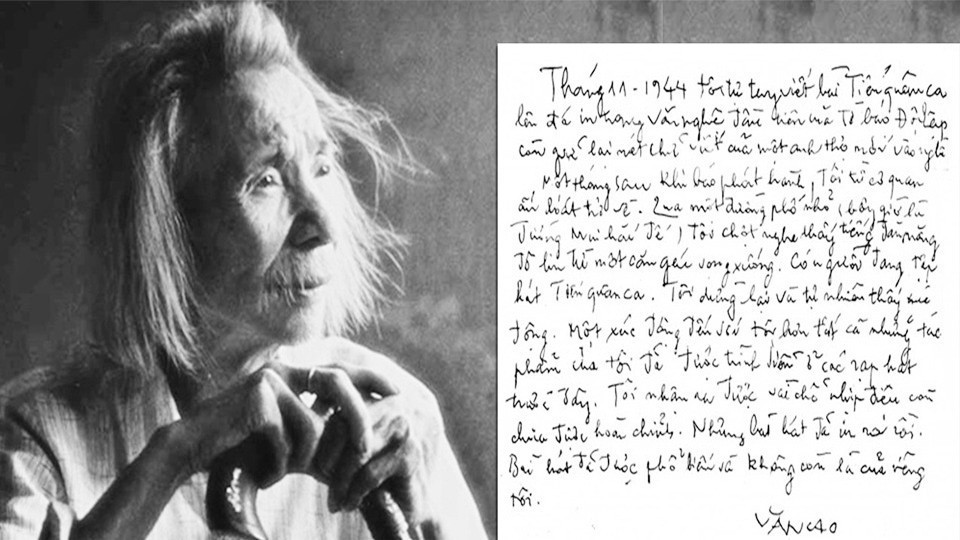 Tháng 11-1944 tôi tự tay viết bài Tiến quân ca
lên đá in trang văn nghệ đầu tiên của tờ báo Độc Lập
còn giữ lại nét chữ viết của một anh thợ mới vào nghề
Một tháng sau khi báo phát hành, Tôi từ cơ quan
ấn loát trở về. Qua một đường phố nhỏ, (bây giờ là
đường Mai hắc Đế) tôi chợt nghe thấy tiếng đàn măng
đô lin từ một căn gác vọng xuống. Có người đang tập
hát Tiến quân ca. Tôi dừng lại và tự nhiên thấy xúc
động. Một xúc động đến với tôi hơn tất cả những tác
phẩm của tôi đã được trình diễn ở các rạp hát
trước đây. Tôi nhận ra được vài chỗ nhịp điệu còn
chưa được hoàn chỉnh. Nhưng bài hát đã in ra rồi.
Bài hát đã được phổ biến và không còn là của riêng
tôi.
VĂN CAO